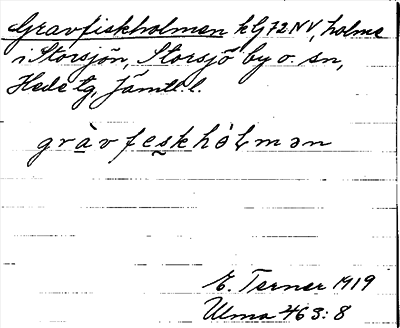 Gravfiskholmen kG72NV, holme
i Storsjön, Storsjö by o. sn,
Hede tg, Jämtl. l.
gràvfeskhòlmən
E. Terner 1919
Ulma 463:8